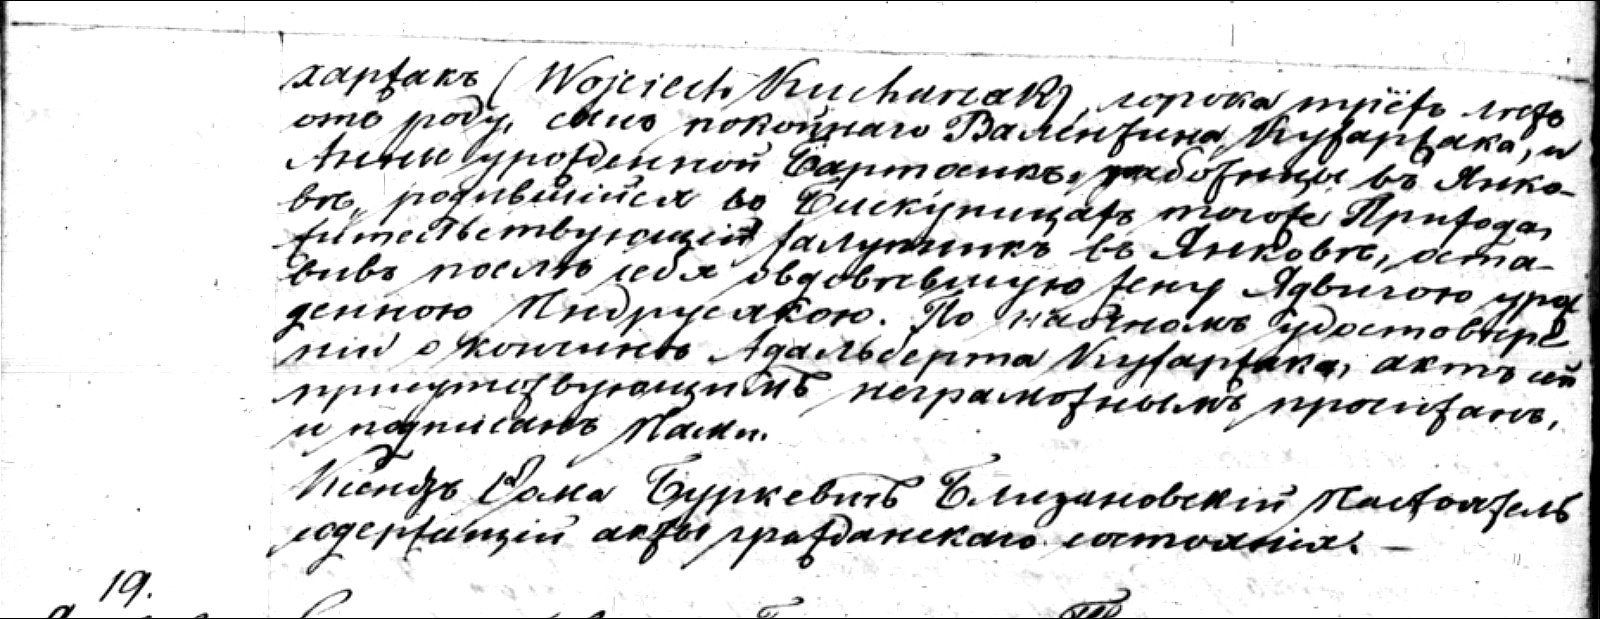 харжакъ (Wojciech Kucharczak), сорока триёхъ летъ
отъ роду, сынъ покойнаго Валентина Кухаржака, и
Анны урожденной Бартосикъ, работницы въ Янко-
ве, родившійся во Бискупицахъ тогоже Прихода,
жительствующій халупникъ въ Янкове, оста-
вивъ после себя овдовевшую жену Ядвигою урож
денною Андрусякою. По наочномъ удостовере
ніи о кончине Адальберта Кухаржака, актъ сей
присутствующимъ неграмотнымъ прочитанъ,
и подписанъ Нами.
Ксендзъ Фома Буркевичъ Близановскій Настоятель
содержащій акты гражданскаго состоянія. —
19.